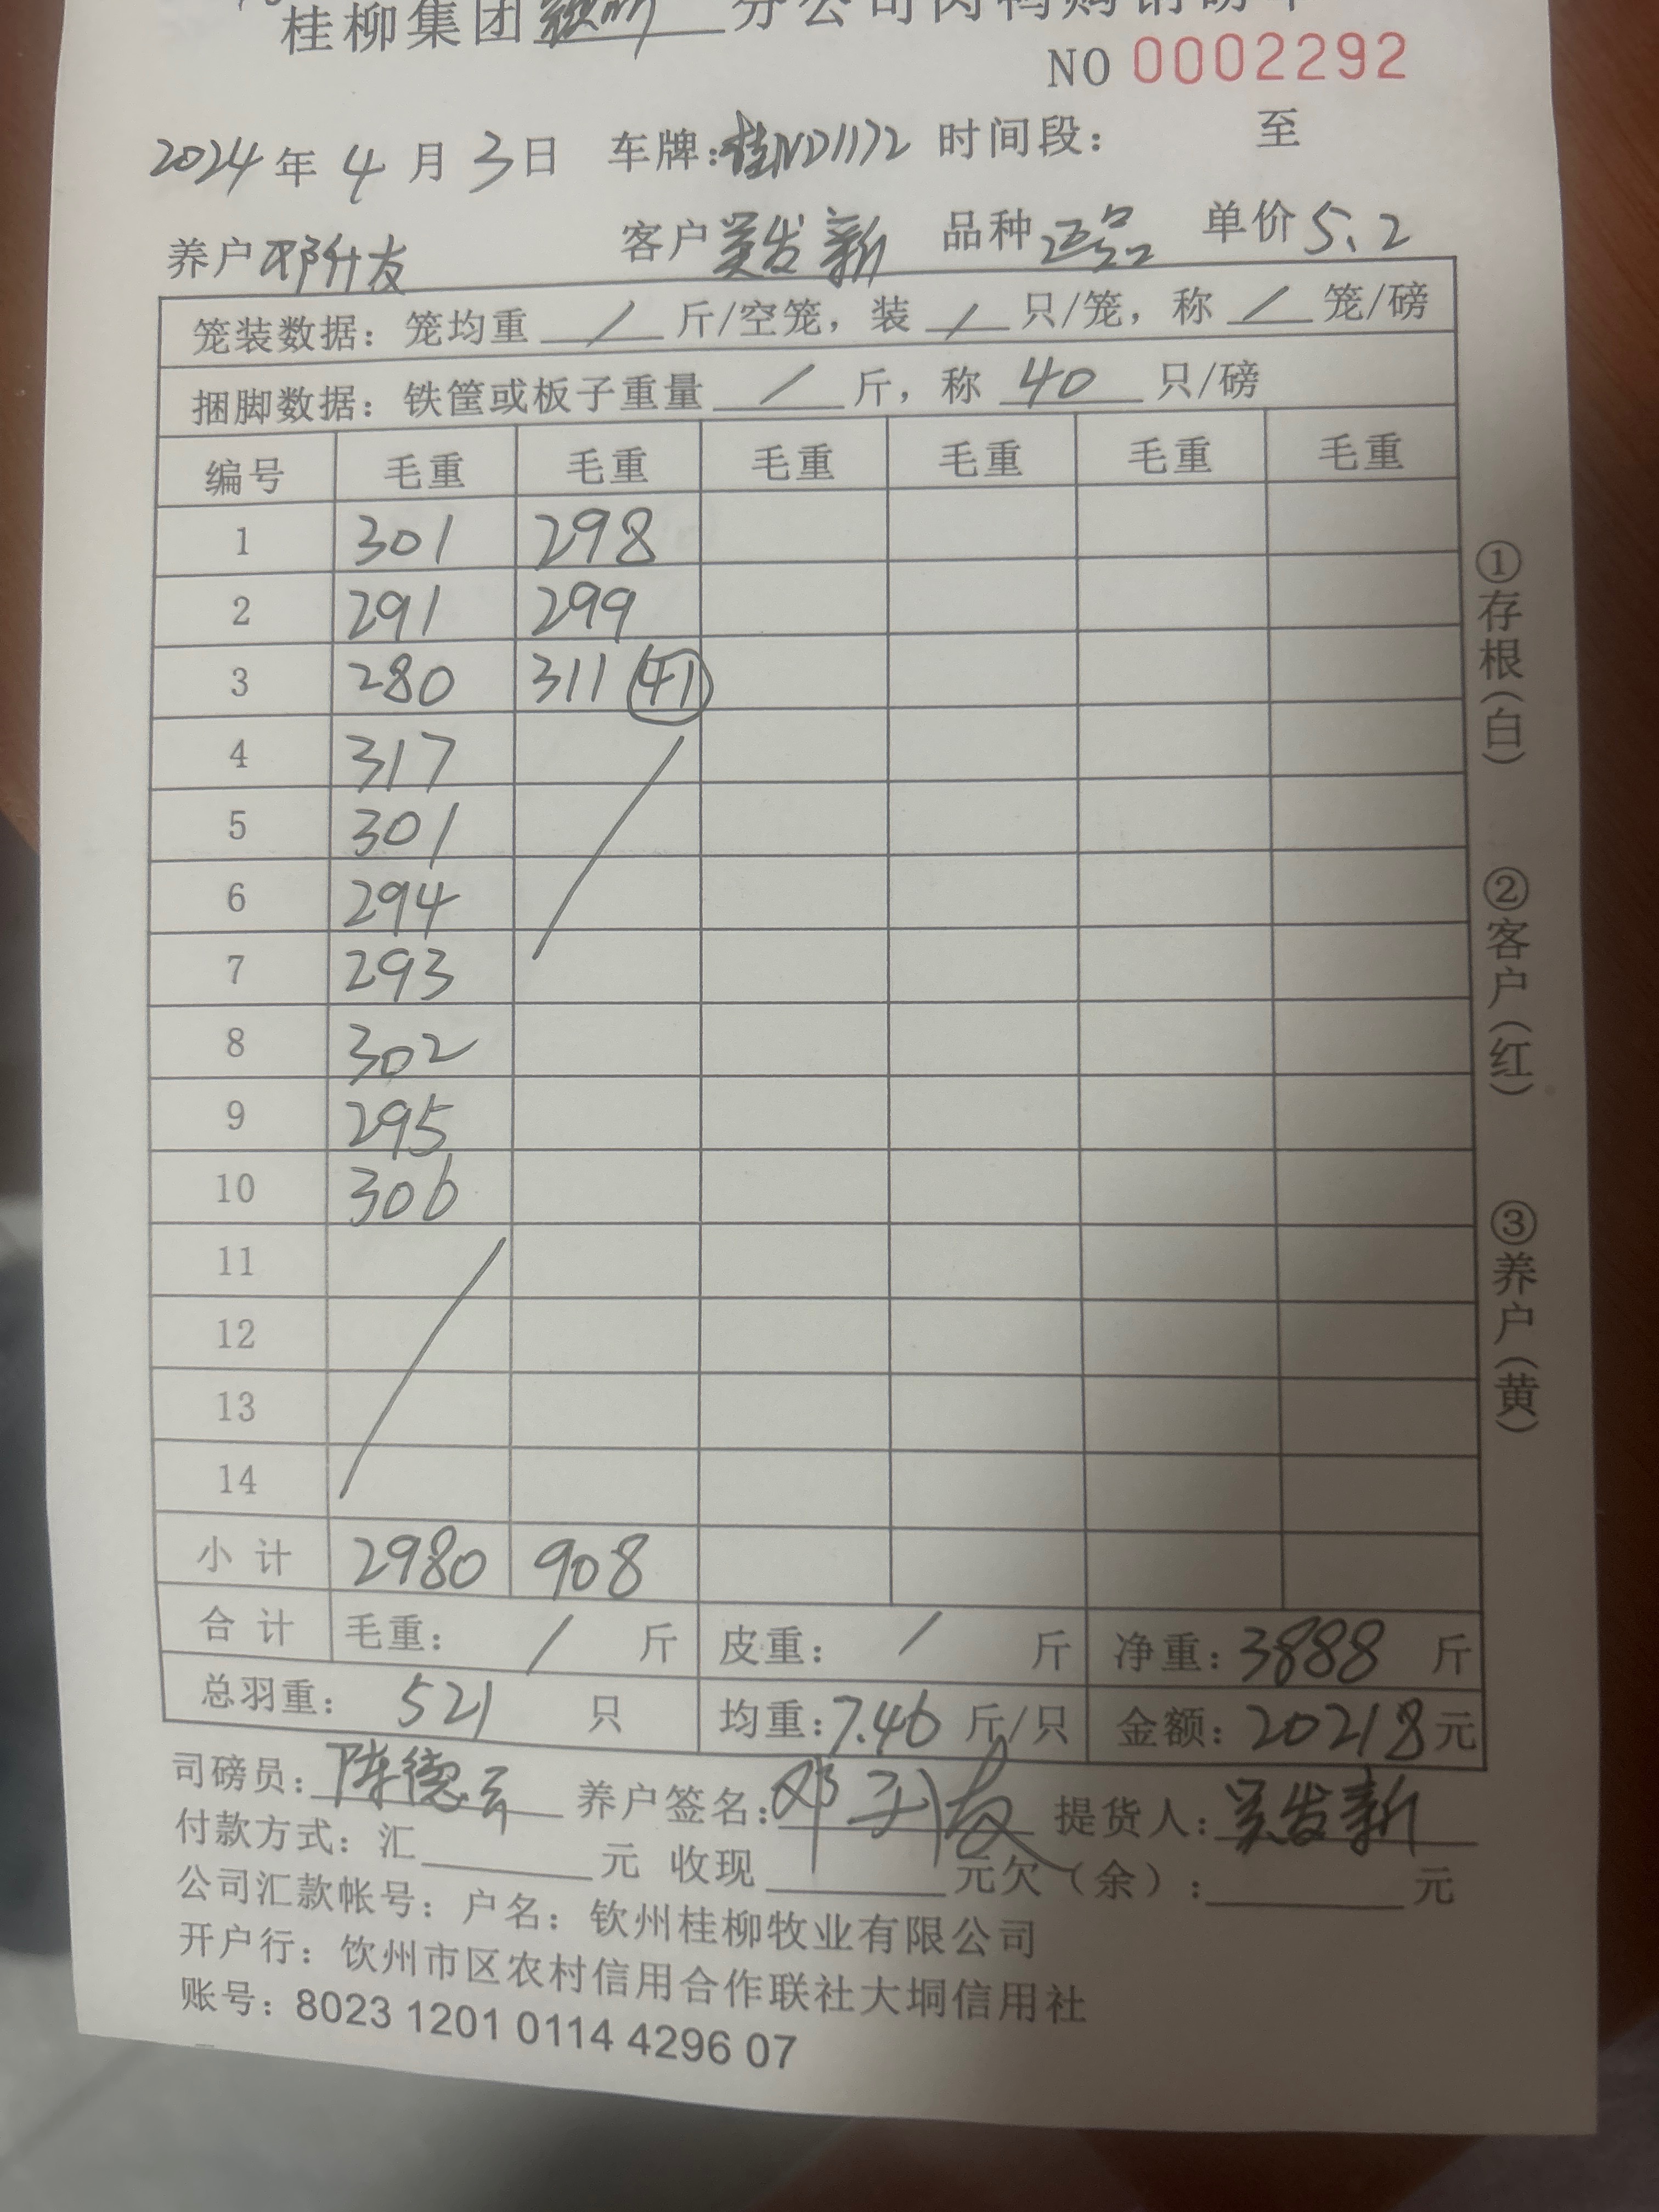 桂柳集团 分公司肉鸭购销磅单
NO 0002292
2024年4月3日 车牌:桂ND1172 时间段: 至
养户 邓升友 客户 吴发新 品种 正品 单价 5.2
笼装数据: 笼均重 / 斤/空笼, 装 / 只/笼, 称 / 笼/磅
捆脚数据: 铁筐或板子重量 / 斤, 称 40 只/磅
编号 毛重 毛重 毛重 毛重 毛重 毛重
1 301 298
2 291 299
3 280 311 (41)
4 317
5 301
6 294
7 293
8 302
9 295
10 306
11
12
13
14
小计 2980 908
合计 毛重: / 斤 皮重: / 斤 净重: 3888 斤
总羽重: 521 只 均重: 7.46 斤/只 金额: 20218 元
司磅员: 陈德云 养户签名: 邓升友 提货人: 吴发新
付款方式: 汇 元 收现 元 欠(余): 元
公司汇款帐号: 户名: 钦州桂柳牧业有限公司
开户行: 钦州市区农村信用合作联社大垌信用社
账号: 8023 1201 0114 4296 07
①存根(白) ②客户(红) ③养户(黄)